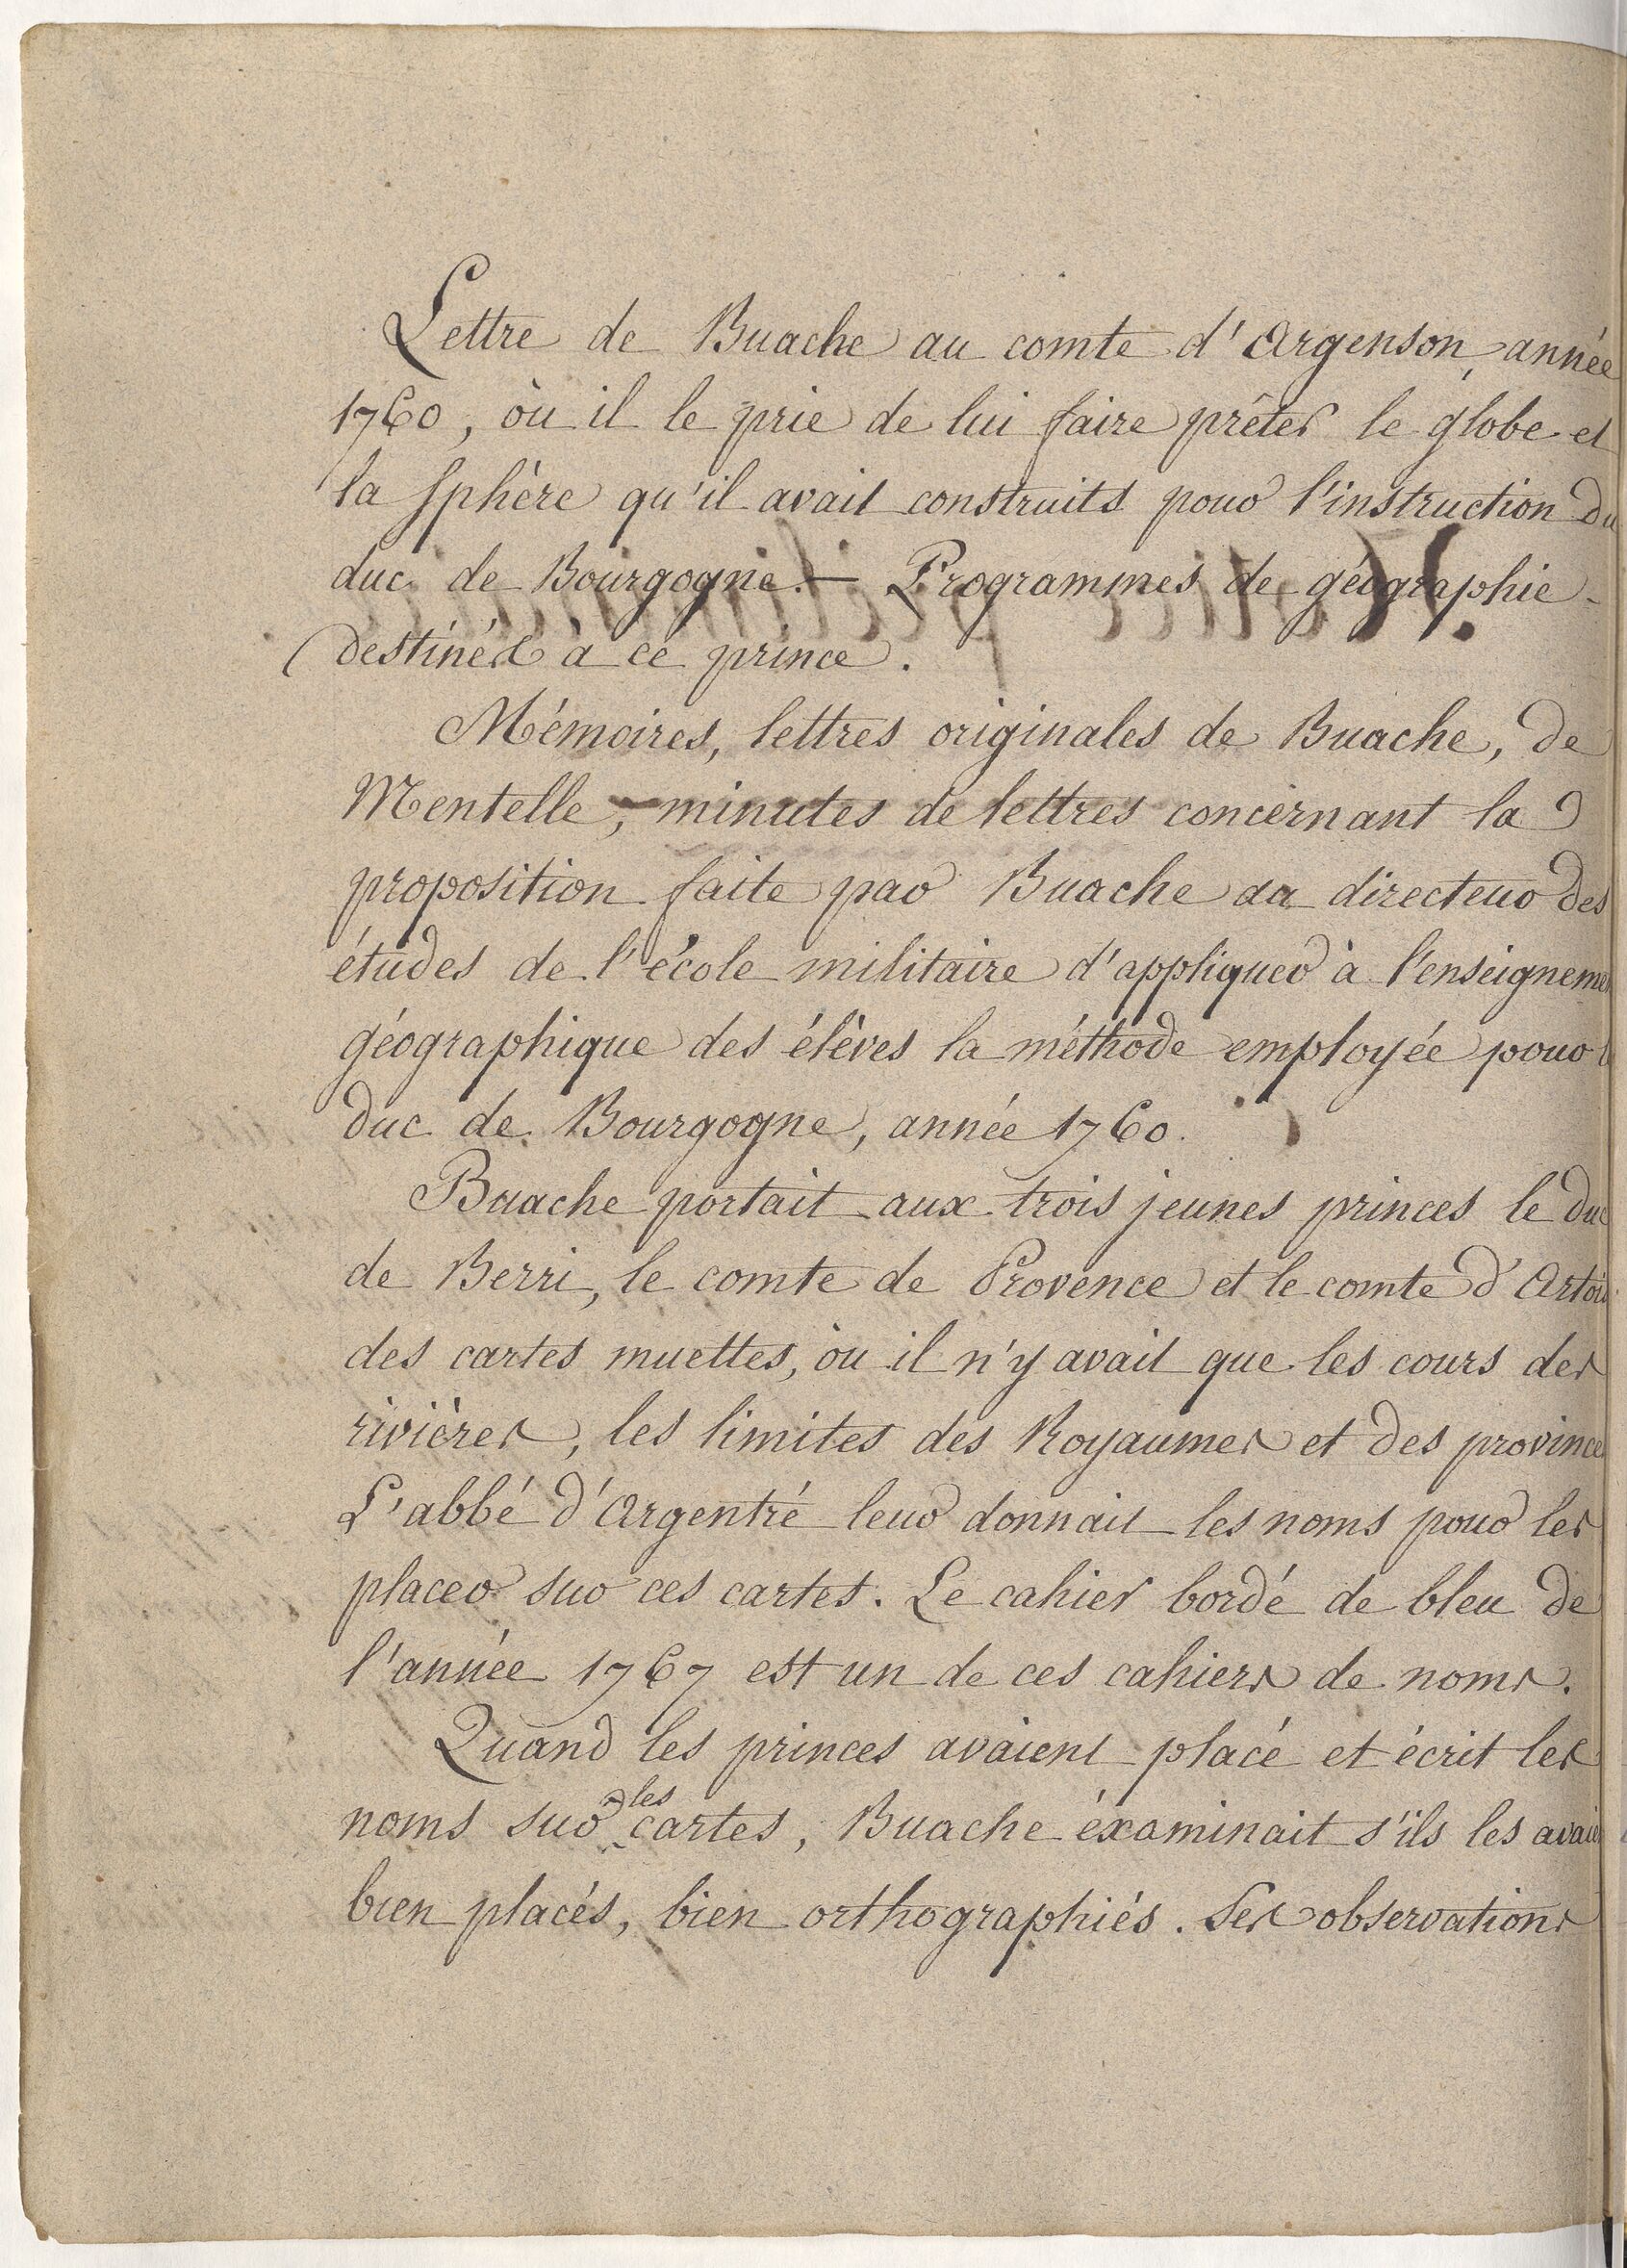 Lettre de Buache au comte d'Argenson, année
1760, où il le prie de lui faire prêter le globe et
la sphère qu'il avait construits pour l'instruction du
duc de Bourgogne. — Programmes de géographie
destinés à ce prince.
Mémoires, lettres originales de Buache, de
Mentelle, minutes de lettres concernant la
proposition faite par Buache au directeur des
études de l'école militaire d'appliquer à l'enseigneme
géographique des élèves la méthode employée pour
duc de Bourgogne, année 1760.
Buache portait aux trois jeunes princes le duc
de Berri, le comte de Provence et le comte d'Artois
des cartes muettes, où il n'y avait que les cours des
rivières, les limites des Royaumes et des province
L'abbé d'Argentré leur donnait les noms pour les
placer sur ces cartes. Le cahier bordé de bleu de
l'année 1767 est un de ces cahiers de noms.
Quand les princes avaient placé et écrit les
noms sur les cartes, Buache éxaminait s'ils les avaie
bien placés, bien orthographiés. Ses observations